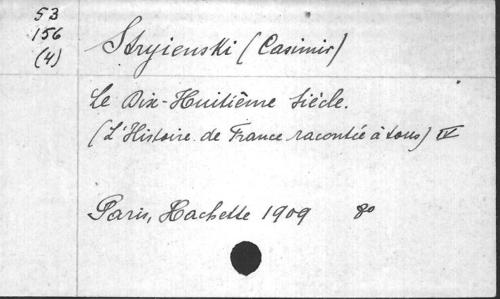 53
156
(4)
Stryienski (Casimir)
Le Dix-Huitième Siècle.
(L'Histoire de France racontée à tous) IV
Paris, Hachette 1909 8o